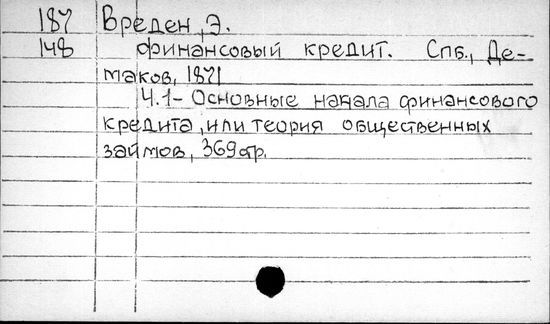 187 Вреден, Э.
148 финансовый кредит. Спб., Де-
маков, 1871
Ч.1- Основные начала финансового
кредита, или теория общественных
займов, 369 стр.